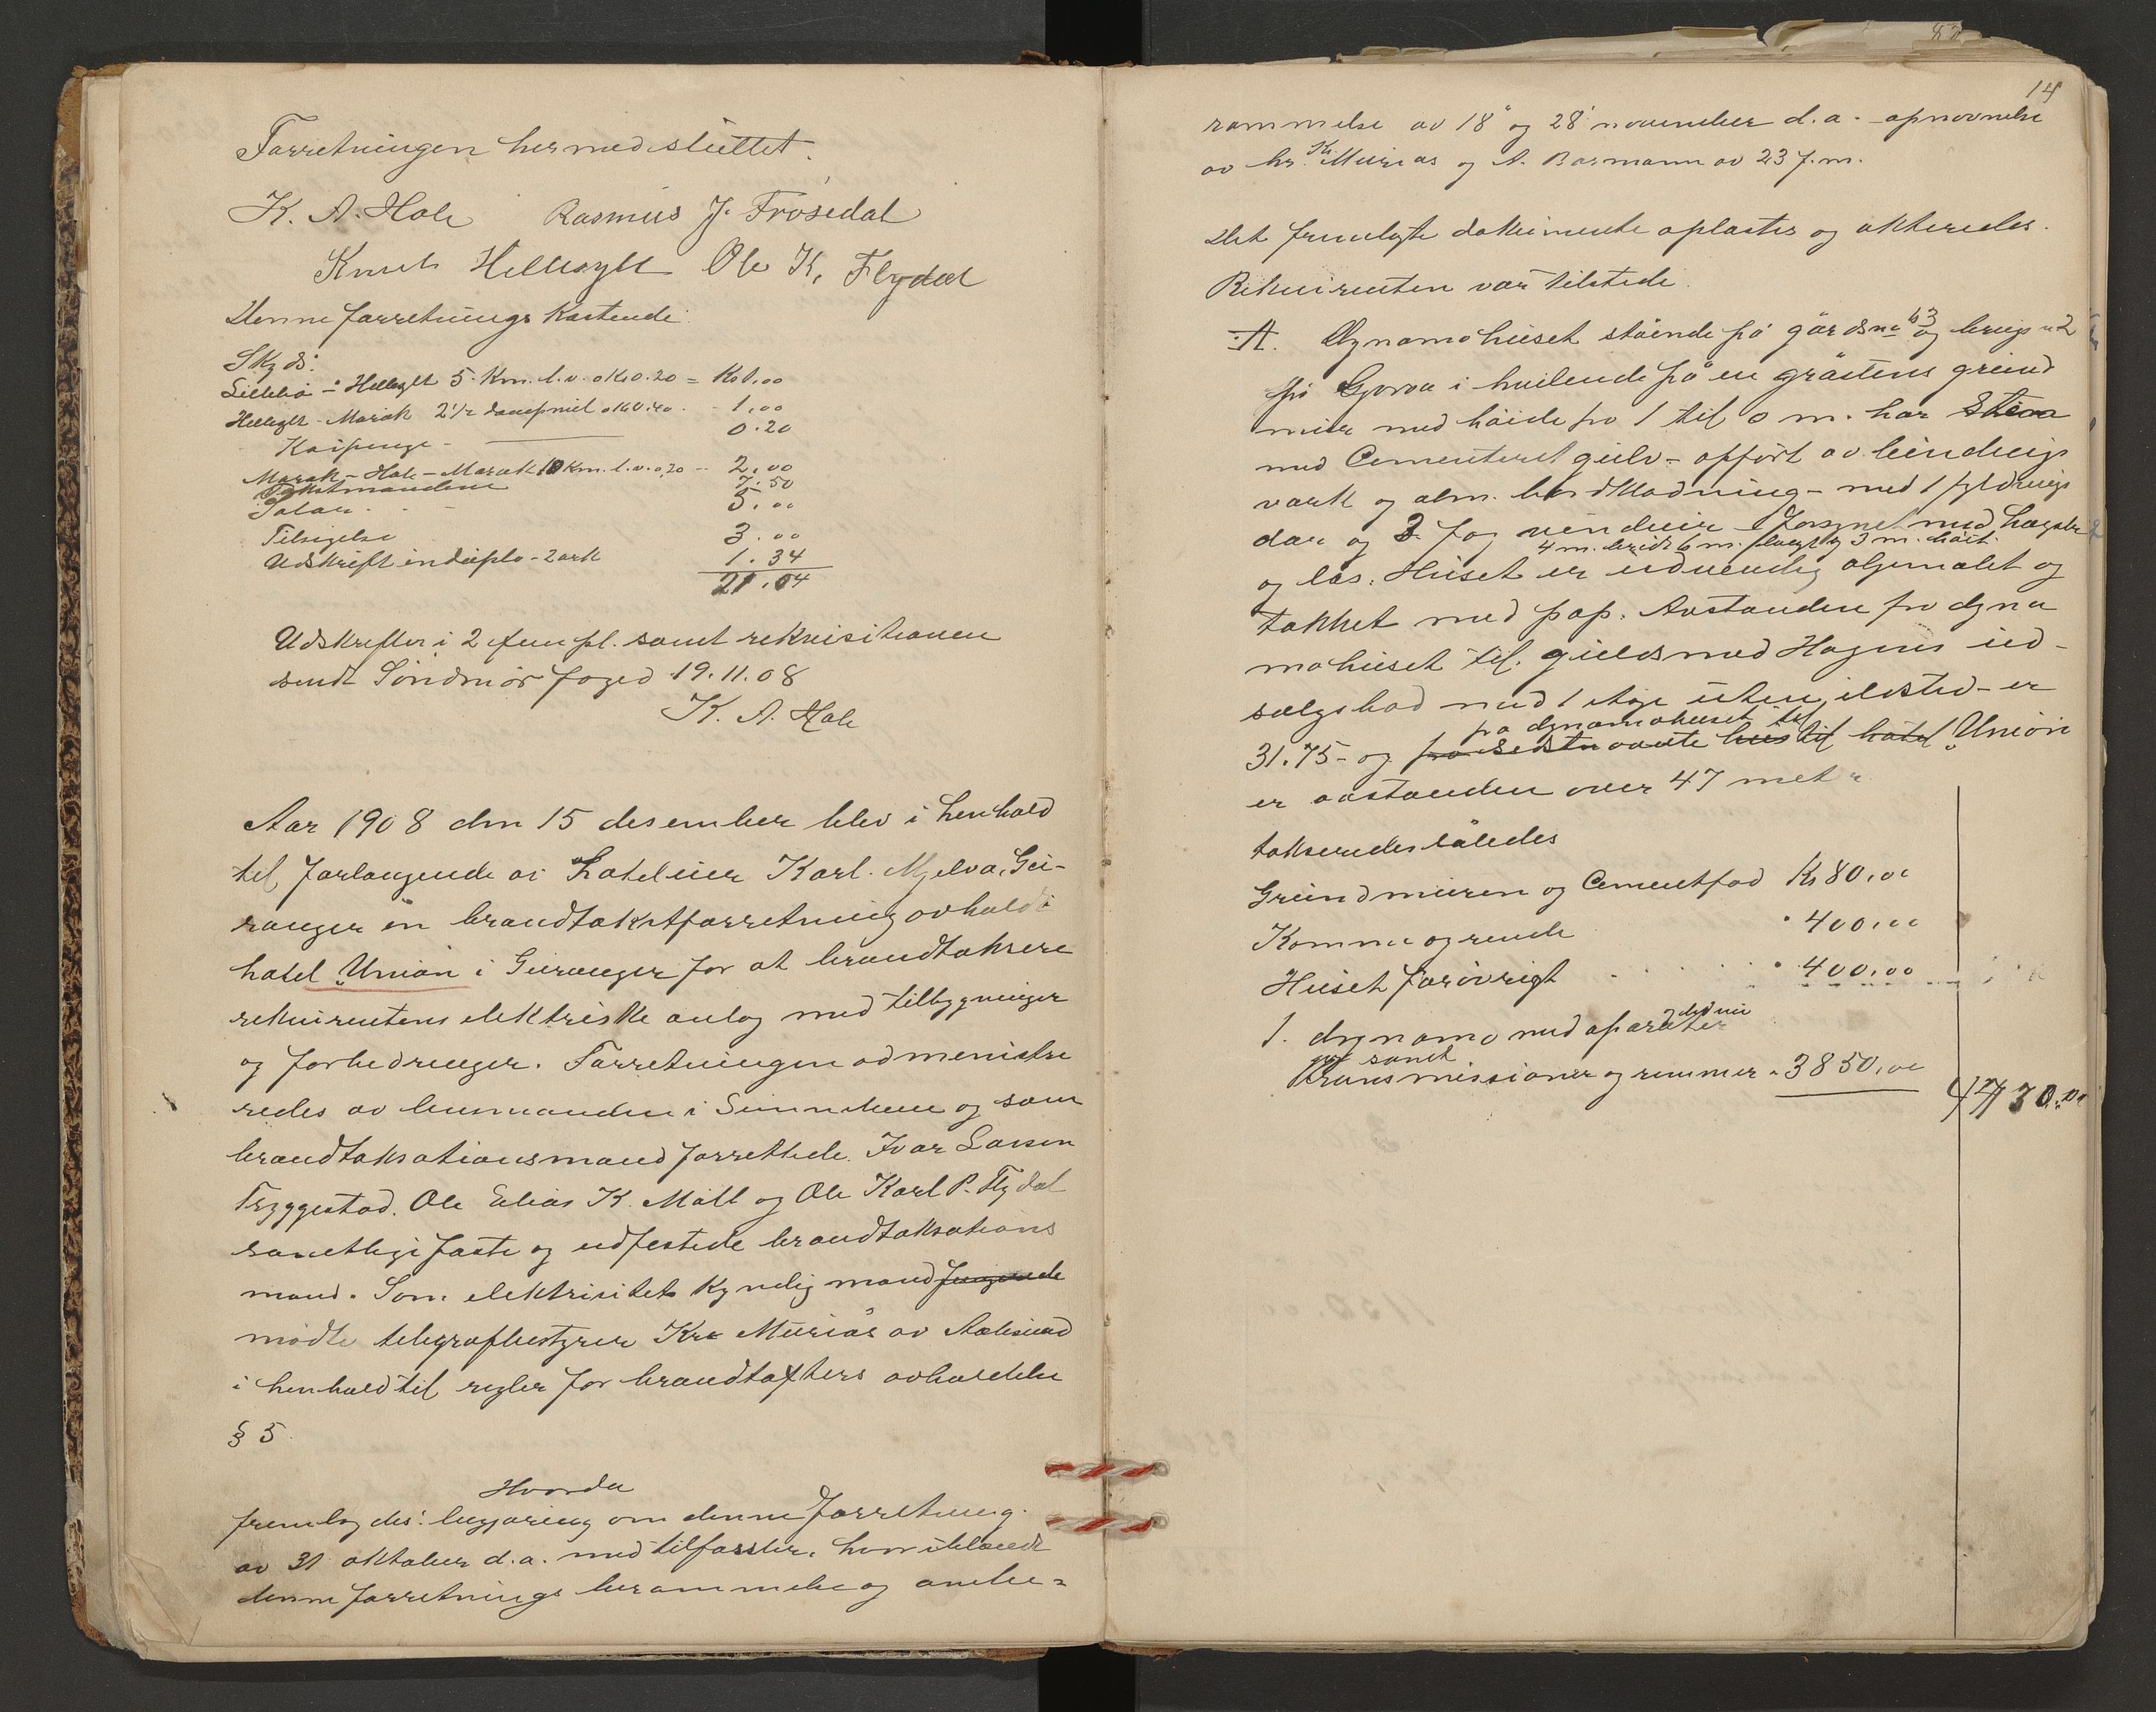 Forretningen hermed sluttet.
K. A. Hole Rasmus J. Frøsedal
Knut Hellesylt Ole K. Flydal
Denne forretnings kostende:
Skyds:
Lillebø - Hellesylt 5 Km. l.v. o Kr 0.20 = Kr 1,00
Hellesylt - Marok 2 1/2 dampmil o Kr 0.40 - 1,00
Kaipenge - 0.20
Marok - Hole - Marok 10 Km. l.v. 0,20 - 2,00
Takstmændene 7.50
Salær - - 5,00
Tilsigelse 3.00
Udskrift in duplo - 2 ark 1.34
21.04
Udskrifter i 2 exempl. samt rekvisitionen
sendt Søndmør foged 19.11.08
K. A. Hole
Aar 1908 den 15 desember blev i henhold
til forlangende av Hoteleier Karl Mjelva, Gei-
ranger en brandtakstforretning avholdt
hotel "Union i Geiranger for at brandtaksere
rekvirentens elektriske anlæg med tilbygninger
og forbedringer. Forretningen administre
redes av lensmanden i Sunnelven og som
brandtaksationsmænd forrettede Ivar Larsen
Tryggestad, Ole Elias K. Moll og Ole Karl P. Flydal
samtlige faste og edfestede brandtaksations
mænd. Som elektrisitets kyndig mand fungerede
mødte telegrafbestyrer Kr. Muriås av Aalesund
i henhold til regler for brandtakters avholdelse
§ 5.
Hvorda
fremlagdes: begjæring om denne forretning
av 31 oktober d.a. med tilførsler, hvoriblandt
denne forretnings berammelse og anbe-
14
rammelse av 18' og 28' november d.a. - opnævnelse
av hr. Kr. Muriås og A. Barmann av 23 f.m.
Det fremlagte dokumente oplæstes og akteredes.
Rekvirenten var tilstede.
A. Dynamohuset stående på gårdsnr 63 og brugs n 2
på Gjørva i hvilende på en gråstens grund
mur med høide fra 1 til 0 m. har Sten
med Cementeret gulv - opført av bindings
værk og alm. bordklædning - med 1 fyldnings
dør og 3 fag vinduer - forsynet med hægsler
4 m. bredt 6 m. langt og 3 m. høit.
og lås. Huset er udvendig oljemalet og
tækket med pap. Avstanden fra dyna
mohuset til guldsmed Hagens ud-
salgsbod med 1 etage uten ildsted - er
fra dynamohuset til
31.75 - og fra sidstnævnte hus til hotel "Union
er avstanden over 47 meter
takseredes således
Grundmuren og Cementfad Kr 80,00
Kommer og rende " 400,00
Huset forøvrigt . . . . . " 400,00
1. dynamo med aparater
samt
transmissioner og remmer " 3850,00
4730,00